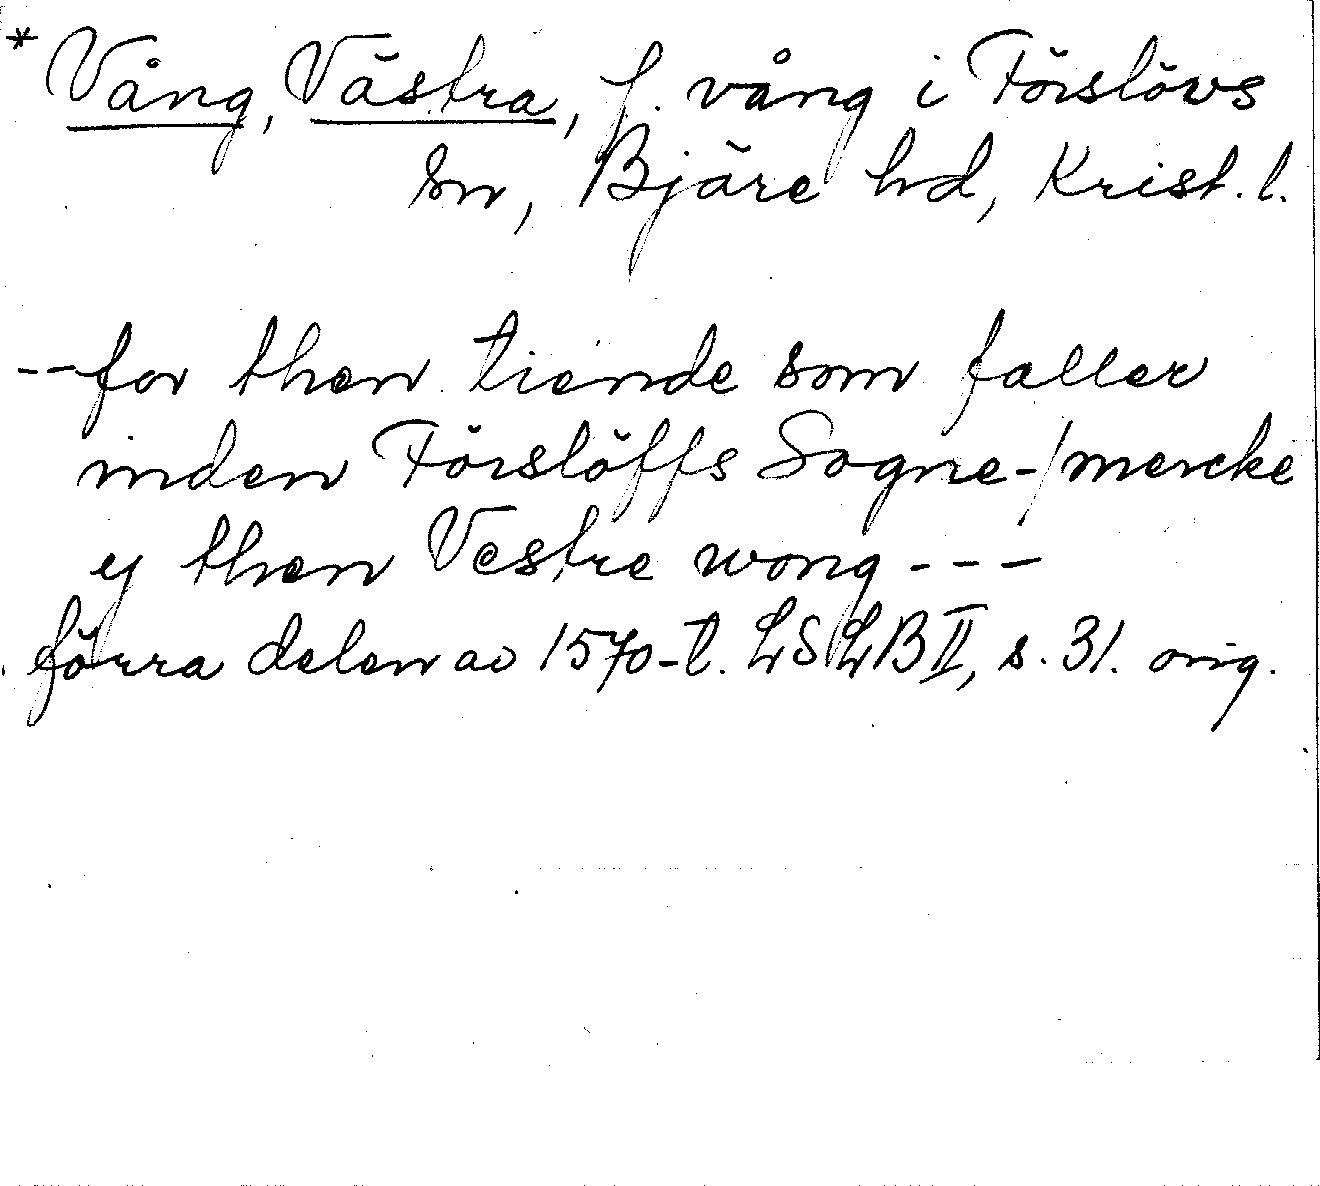 * Vång, Västra, f. vång i Förslövs
sn, Bjäre hd, Krist. l.
-- for then tiende som faller
inden Förslöffs Sogne-/mercke
ej then Vestre wong ---
förra delen av 1570-t. LSLB II, s. 31. orig.